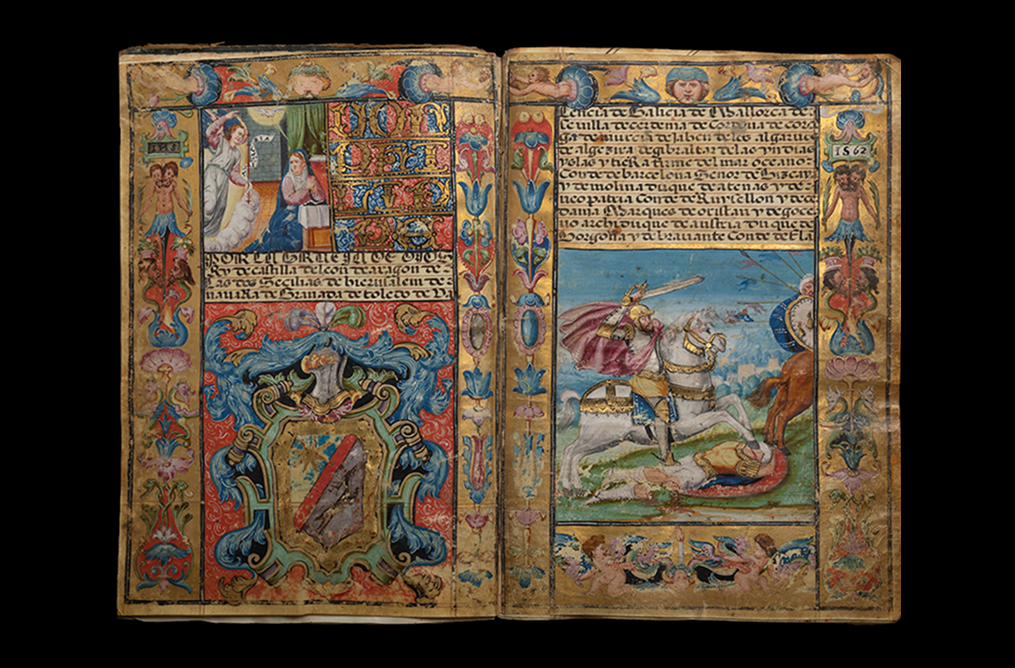 DON
POR LA GRACIA DE DIOS
Rey de castilla de leon de aragon de
Las dos Secilias de hierusalem de
navaRa de Granada de toledo de Va
lencia de Galicia de Mallorca de
Sevilla de cerdenia de cor
ga de murcia de Jahen de los algarves
de algezira de gibraltar de las yndias
yslas y tieRa firme del mar oceano
Conde de barcelona Senor de Bizcay
y de molina duque de atenas y de
neopatria Conde de Ruysellon y de cer
dania Marques de oristan y de goce
no archiduque de austria duque de
Borgoña y de bravante Conde de fla
1562